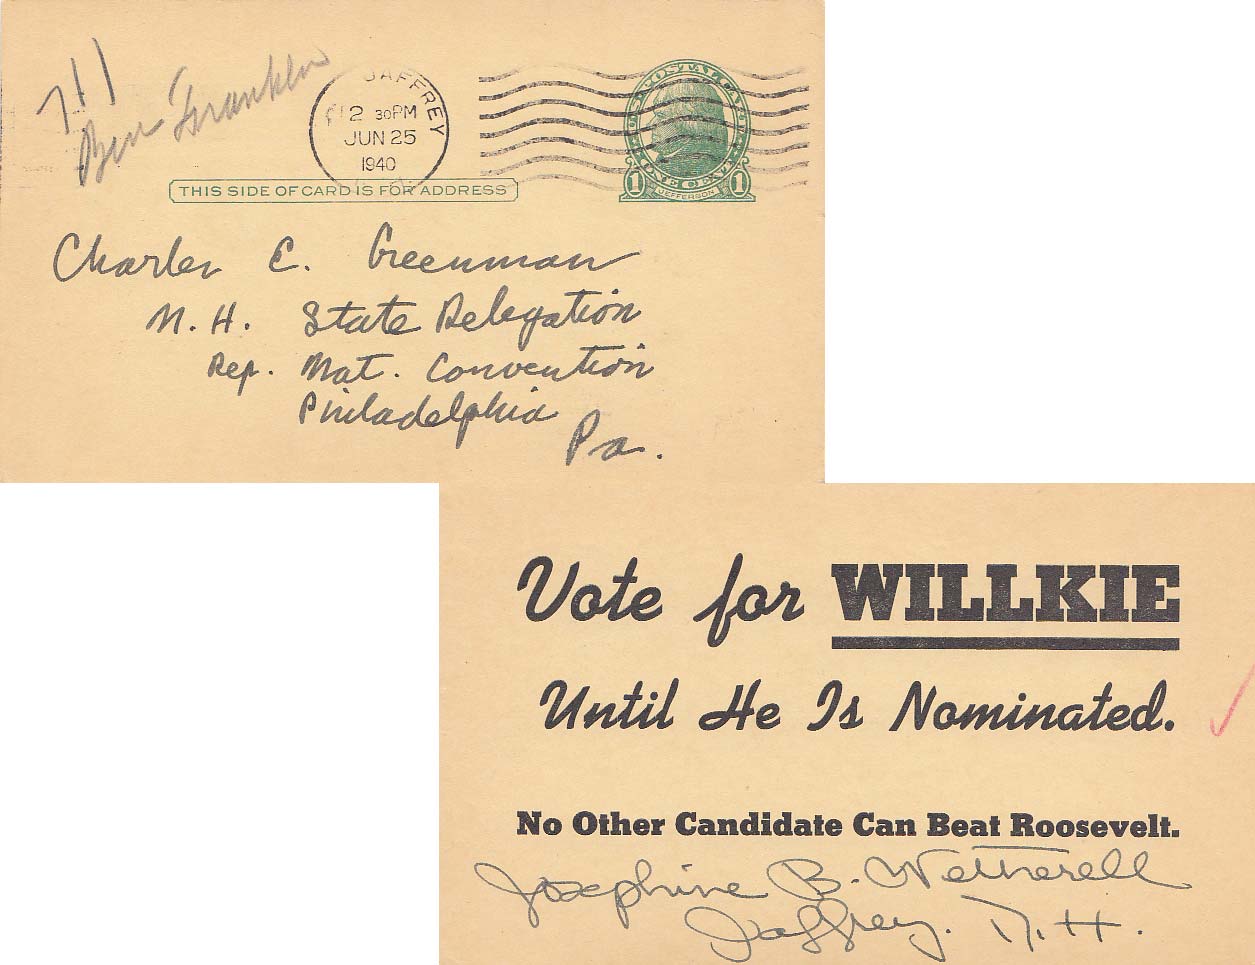 741
Ben Franklin
JAFFREY
2 30PM
JUN 25
1940
U.S. POSTAL CARD
ONE CENT
1 JEFFERSON 1
THIS SIDE OF CARD IS FOR ADDRESS
Charles E. Greenman
N. H. State Delegation
Rep. Nat. Convention
Philadelphia
Pa.
Vote for WILLKIE
Until He Is Nominated.
No Other Candidate Can Beat Roosevelt.
Josephine B. Wetherell
Jaffrey. N.H.